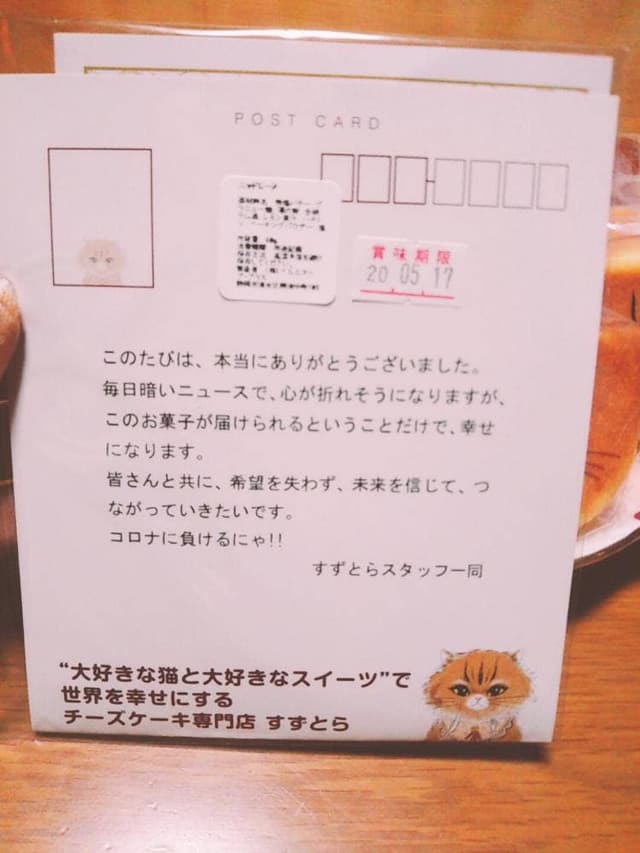 POST CARD
賞味期限
20 05 17
このたびは、本当にありがとうございました。
毎日暗いニュースで、心が折れそうになりますが、
このお菓子が届けられるということだけで、幸せ
になります。
皆さんと共に、希望を失わず、未来を信じて、つ
ながっていきたいです。
コロナに負けるにゃ!!
すずとらスタッフ一同
“大好きな猫と大好きなスイーツ”で
世界を幸せにする
チーズケーキ専門店 すずとら